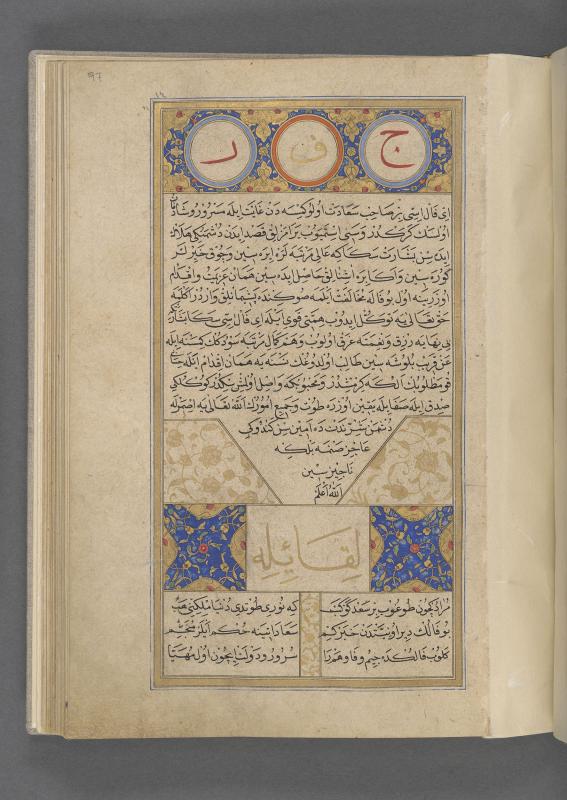 ج ف ر
ای فال اسی بر صاحب سعادت اولو کسه دن غایت ایله سرور و شاد
اولسك کرکدر وسنی استمیوب بر قصد ایدن دشمنکی هلاك
ایده سن بشارت سکا که عالی مرتبه لره ایره سین وچوق خیرلر
کوره سین و اکابره اشنالق حاصل ایده سین همان عزیمت و اقدام
اوزرینه اول بو فاله مخالفت ایلمه صوکنده پشیمانلق واردر
حق تعالی یه توکل ایدوب همتی قوی ایله ای فال اسی سکا بشارت
بی نهایه رزق و نعمته غرق اولوب و هم کمال مرتبه کسنه ایله
عن قریب بلوشه سین طالب اولدوغك نسنه یه همان اقدام ایله
مطلوبك الکه کرمشدر و محبوبکه واصل کوکلکی
صدق ایله صفا ایله یقین اوزره طوت و جمیع امورك الله تعالی یه اصمرله
دشمن شرندن ده امین سن کندوکی
عاجز صنمه بلکه
ناچیز سین
الله اعلم
لقائله
مرادکچون طوغوب بر سعد کوکب که نوری طوتدی دنیا ملکنی هب
بو فالك خبر کم سعادتیته حکم ایلر منجم
کلوب فالکده جیم و فا و هم را سرور و دولت ایچون اوله مهیا